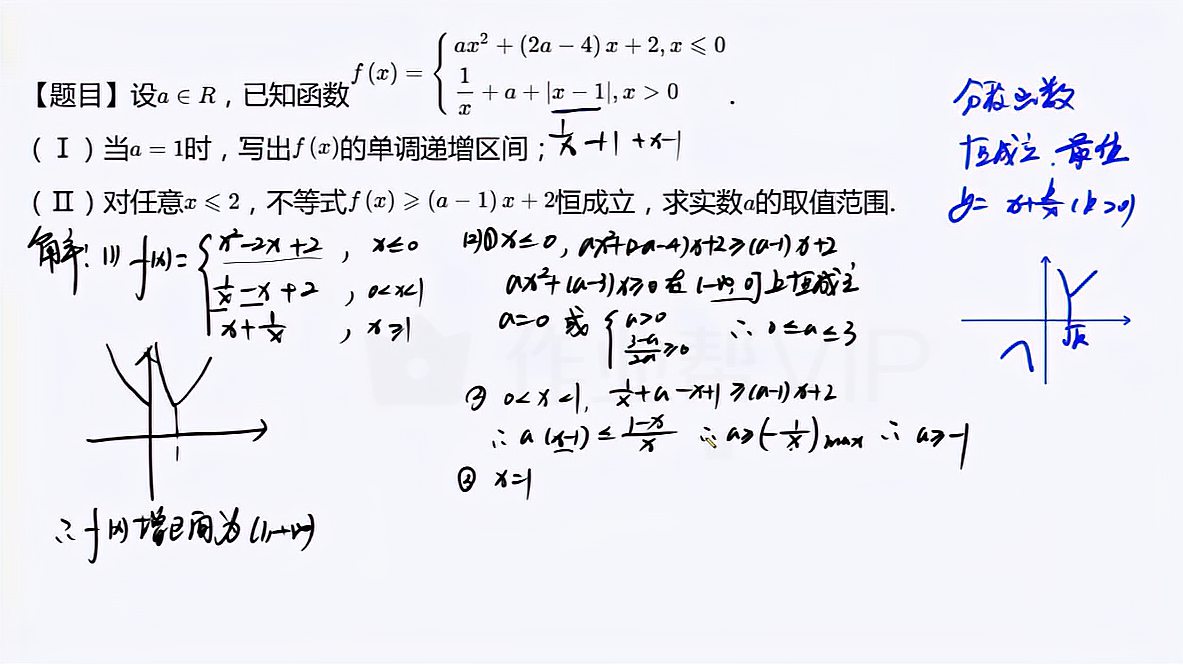 【题目】设a∈R，已知函数f(x)={ax²+(2a−4)x+2,x⩽0
1/x+a+|x−1|,x>0 .
(Ⅰ)当a=1时，写出f(x)的单调递增区间；1/x+1+x-1
(Ⅱ)对任意x⩽2，不等式f(x)⩾(a−1)x+2恒成立，求实数a的取值范围.
分段函数
恒成立、最值
y=x+k/x(k>0)
√k
解：(1) f(x)={x²-2x+2，x≤0
1/x-x+2，0<x<1
x+1/x，x≥1
1
∴f(x)增区间为(1,+∞)
(2)①x≤0，ax²+(2a-4)x+2≥(a-1)x+2
ax²+(a-3)x≥0在(-∞,0]上恒成立
a=0或{a>0
(3-a)/2a≥0 ∴0≤a≤3
② 0<x<1，1/x+a-x+1≥(a-1)x+2
∴a(x-1)≤(1-x)/x ∴a≥(-1/x)max ∴a≥-1
③ x=1
作业帮VIP